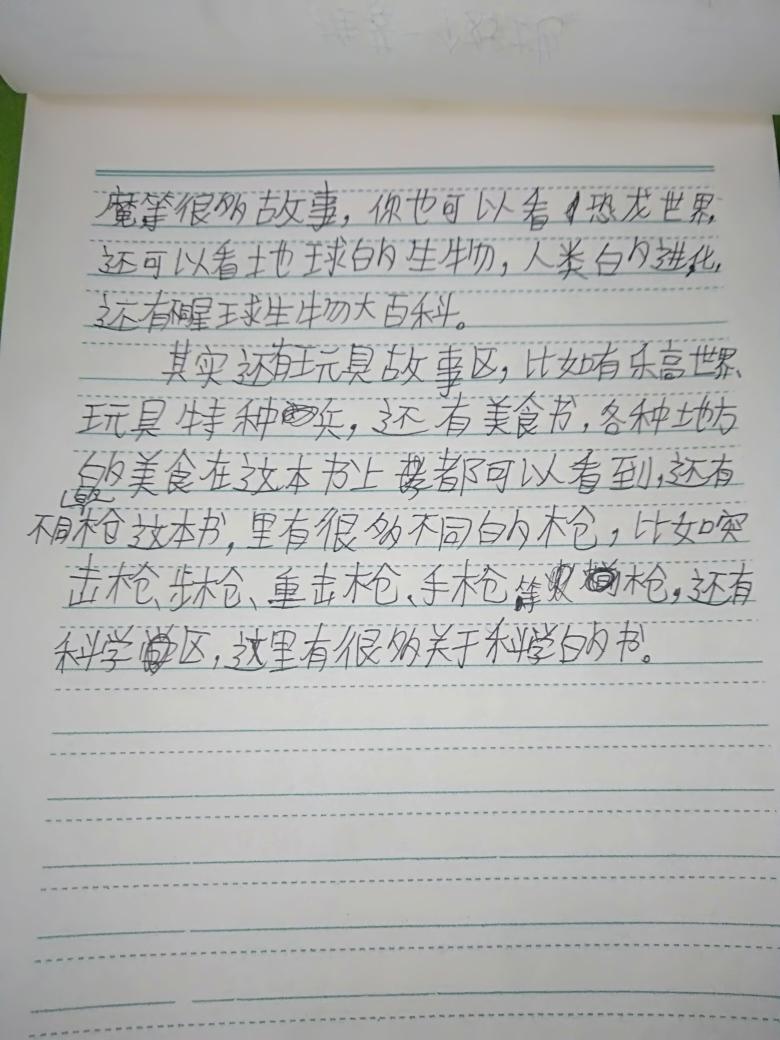 魔等很多故事，你也可以看恐龙世界，
还可以看地球的生物，人类的进化，
还有醒球生物大百科。
其实还有玩具故事区，比如有乐高世界、
玩具特种兵，还有美食书，各种地方
的美食在这本书上都可以看到，还有
不同枪这本书，里有很多不同的枪，比如突
击枪、步枪、重击枪、手枪等枪，还有
科学区，这里有很多关于科学的书。